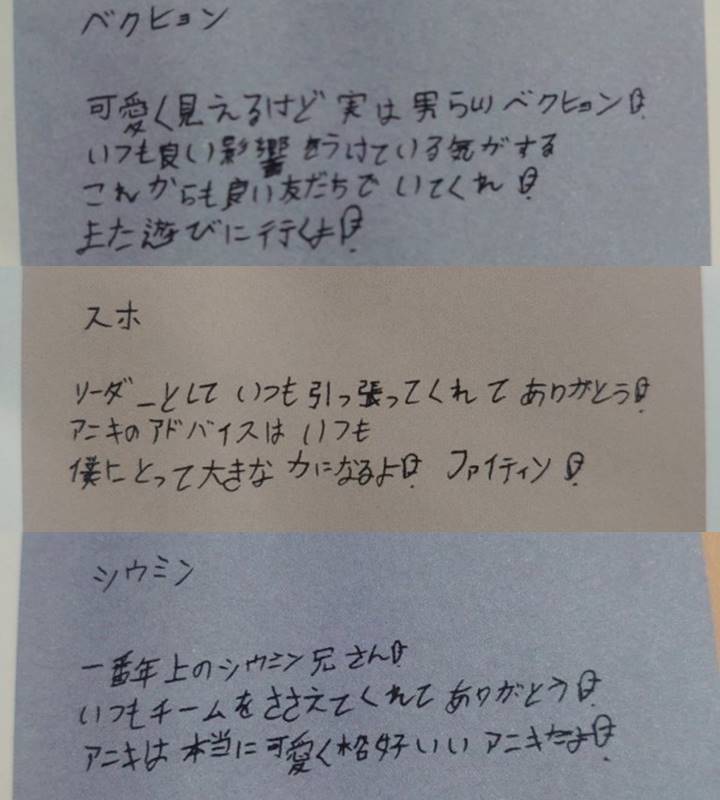 ベクヒョン
可愛く見えるけど実は男らしいベクヒョン!
いつも良い影響をうけている気がする
これからも良い友だちでいてくれ!
また遊びに行くよ!
スホ
リーダーとしていつも引っ張ってくれてありがとう!
アニキのアドバイスはいつも
僕にとって大きな力になるよ! ファイティン!
シウミン
一番年上のシウミン兄さん!
いつもチームをささえてくれてありがとう!
アニキは本当に可愛く格好いいアニキだよ!